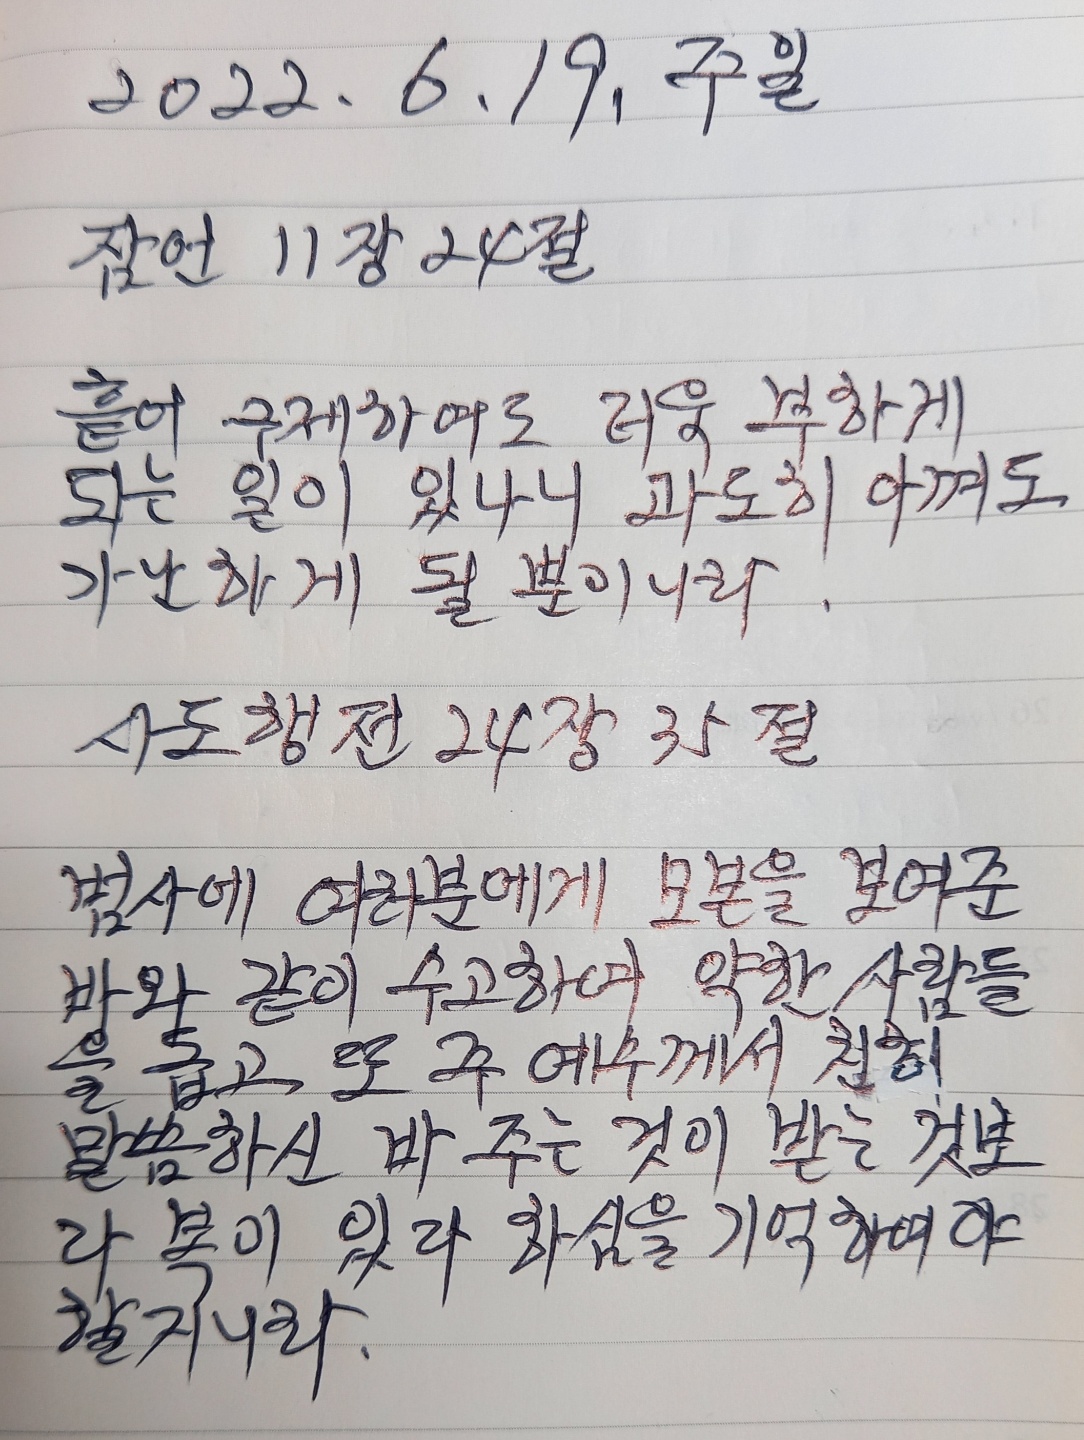 2022. 6. 19, 주일
잠언 11장 24절
흩어 구제하여도 더욱 부하게
되는 일이 있나니 과도히 아껴도
가난하게 될 뿐이니라.
사도행전 24장 35절
범사에 여러분에게 모본을 보여준
바와 같이 수고하여 약한 사람들
을 돕고 또 주 예수께서 친히
말씀하신 바 주는 것이 받는 것보
다 복이 있다 하심을 기억하여야
할지니라.